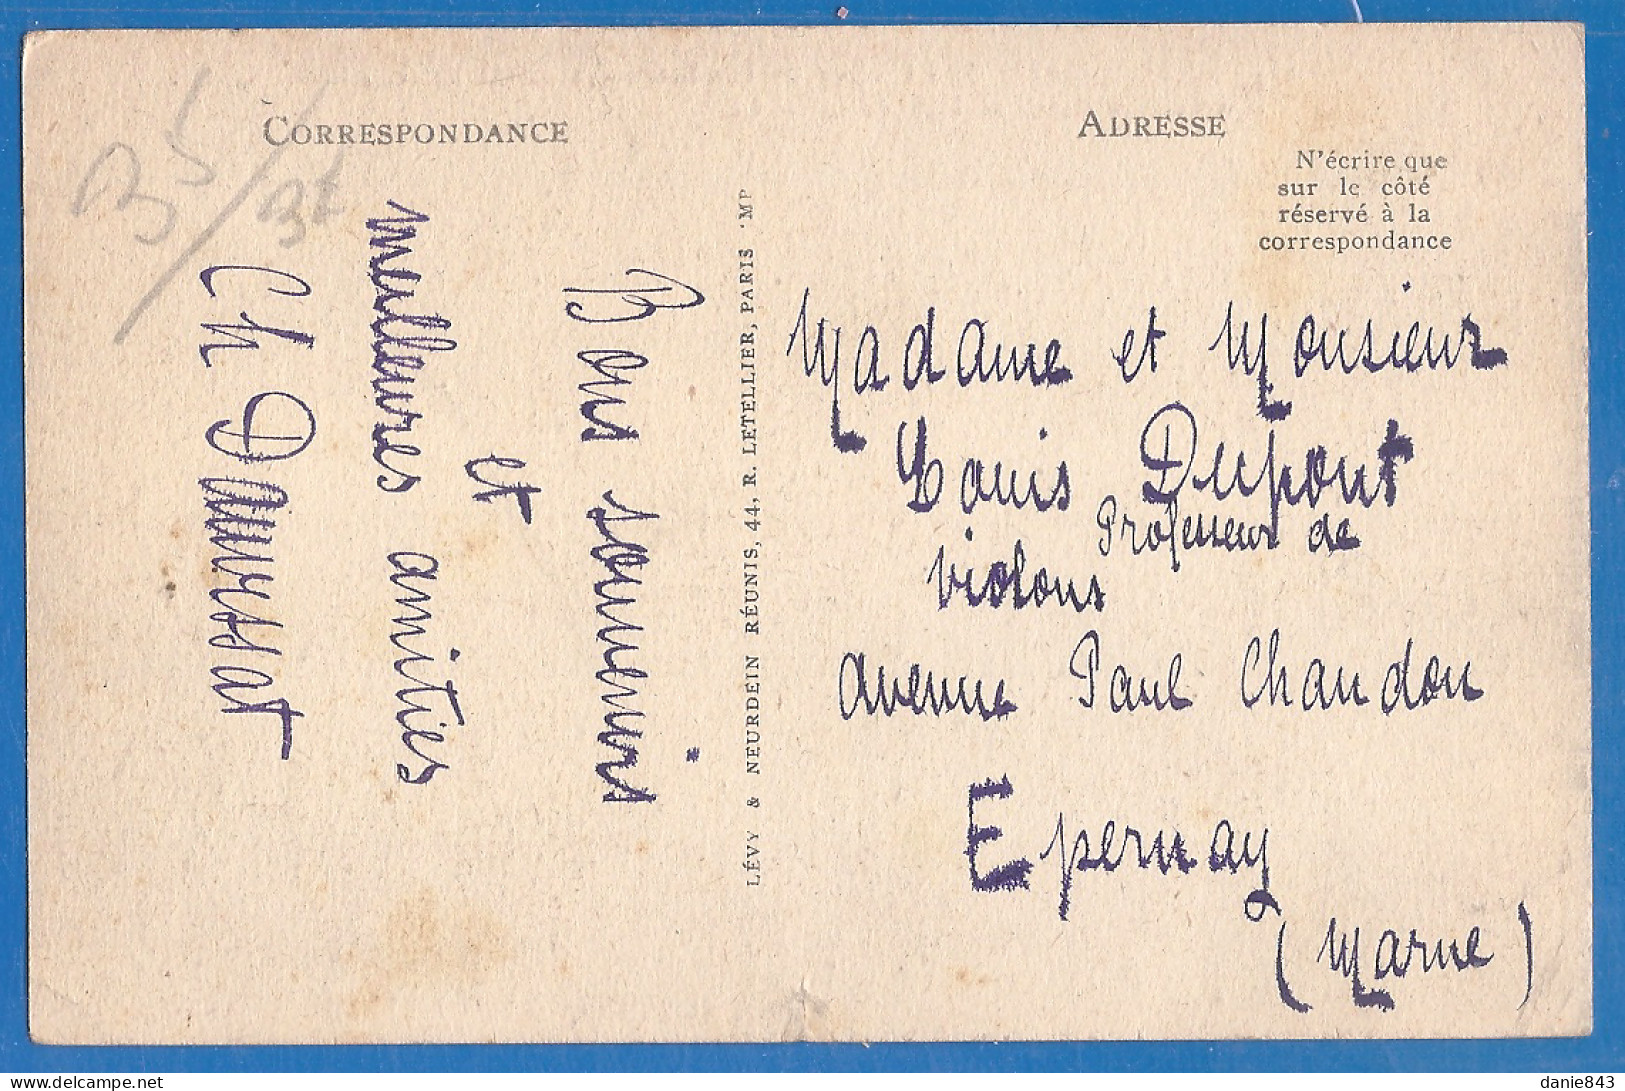 CORRESPONDANCE
Bons souvenirs
et
meilleures amitiés
Ch Daurssat
LÉVY & NEURDEIN RÉUNIS, 44, R. LETELLIER, PARIS
ADRESSE
N'écrire que
sur le côté
réservé à la
correspondance
Madame et Monsieur
Louis Dupont
Professeur de
violons
avenue Paul Chandon
Epernay
(Marne)
delcampe.net
danie843